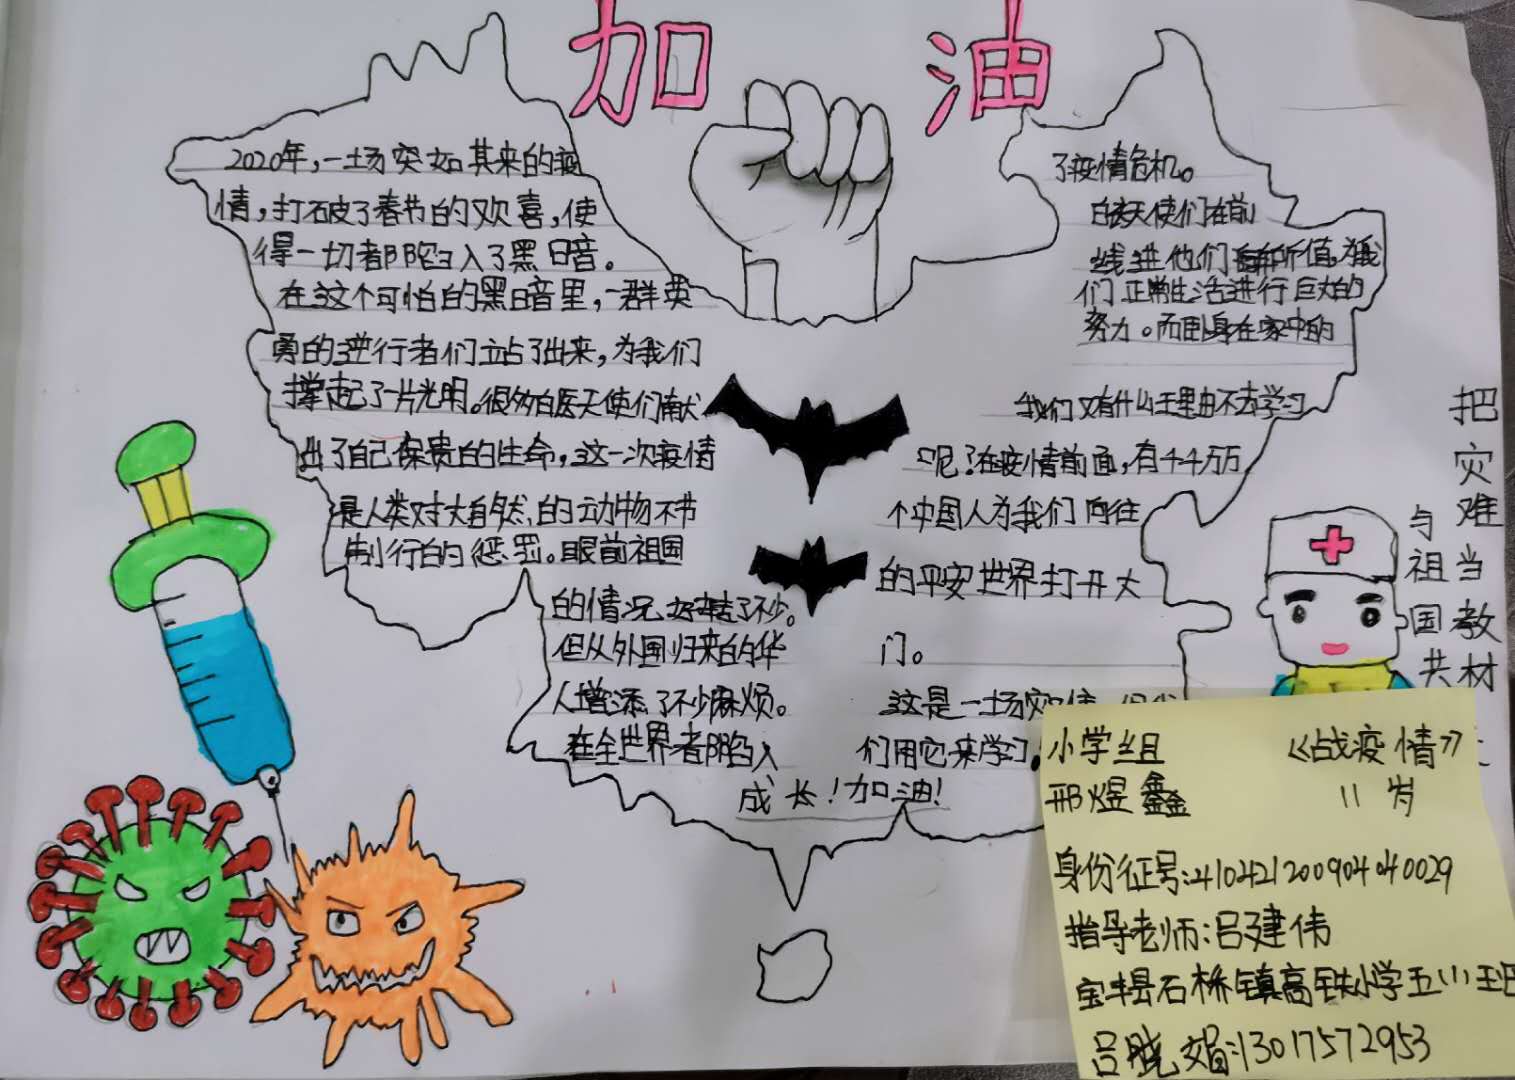 加油
2020年，一场突如其来的疫
情，打破了春节的欢喜，使
得一切都陷入了黑暗。
在这个可怕的黑暗里，一群英
勇的逆行者们站了出来，为我们
撑起了一片光明。很多白医天使们献
出了自己保贵的生命，这一次疫情
是人类对大自然的动物不节
制行的惩罚。眼前祖国
的情况，好转了不少。
但从外国归来的华
人增添了不少麻烦。
在全世界者陷入
了疫情危机。
天使们在前
线进他们所值，为我
们正常生活进行巨大的
努力。而卧身在家中的
我们又有什么理由不去学习
呢？在疫情前面，有千千万万
个中国人为我们向往
的平安世界打开大
门。
这是一场灾
们用它来学习，
成长！加油！
把灾难当教材
与祖国共
小学组 《战疫情》
邢煜鑫 11岁
身份证号：410421200904040029
指导老师：吕建伟
宝丰县石桥镇高铁小学五(1)班
吕晓娟：13017572953